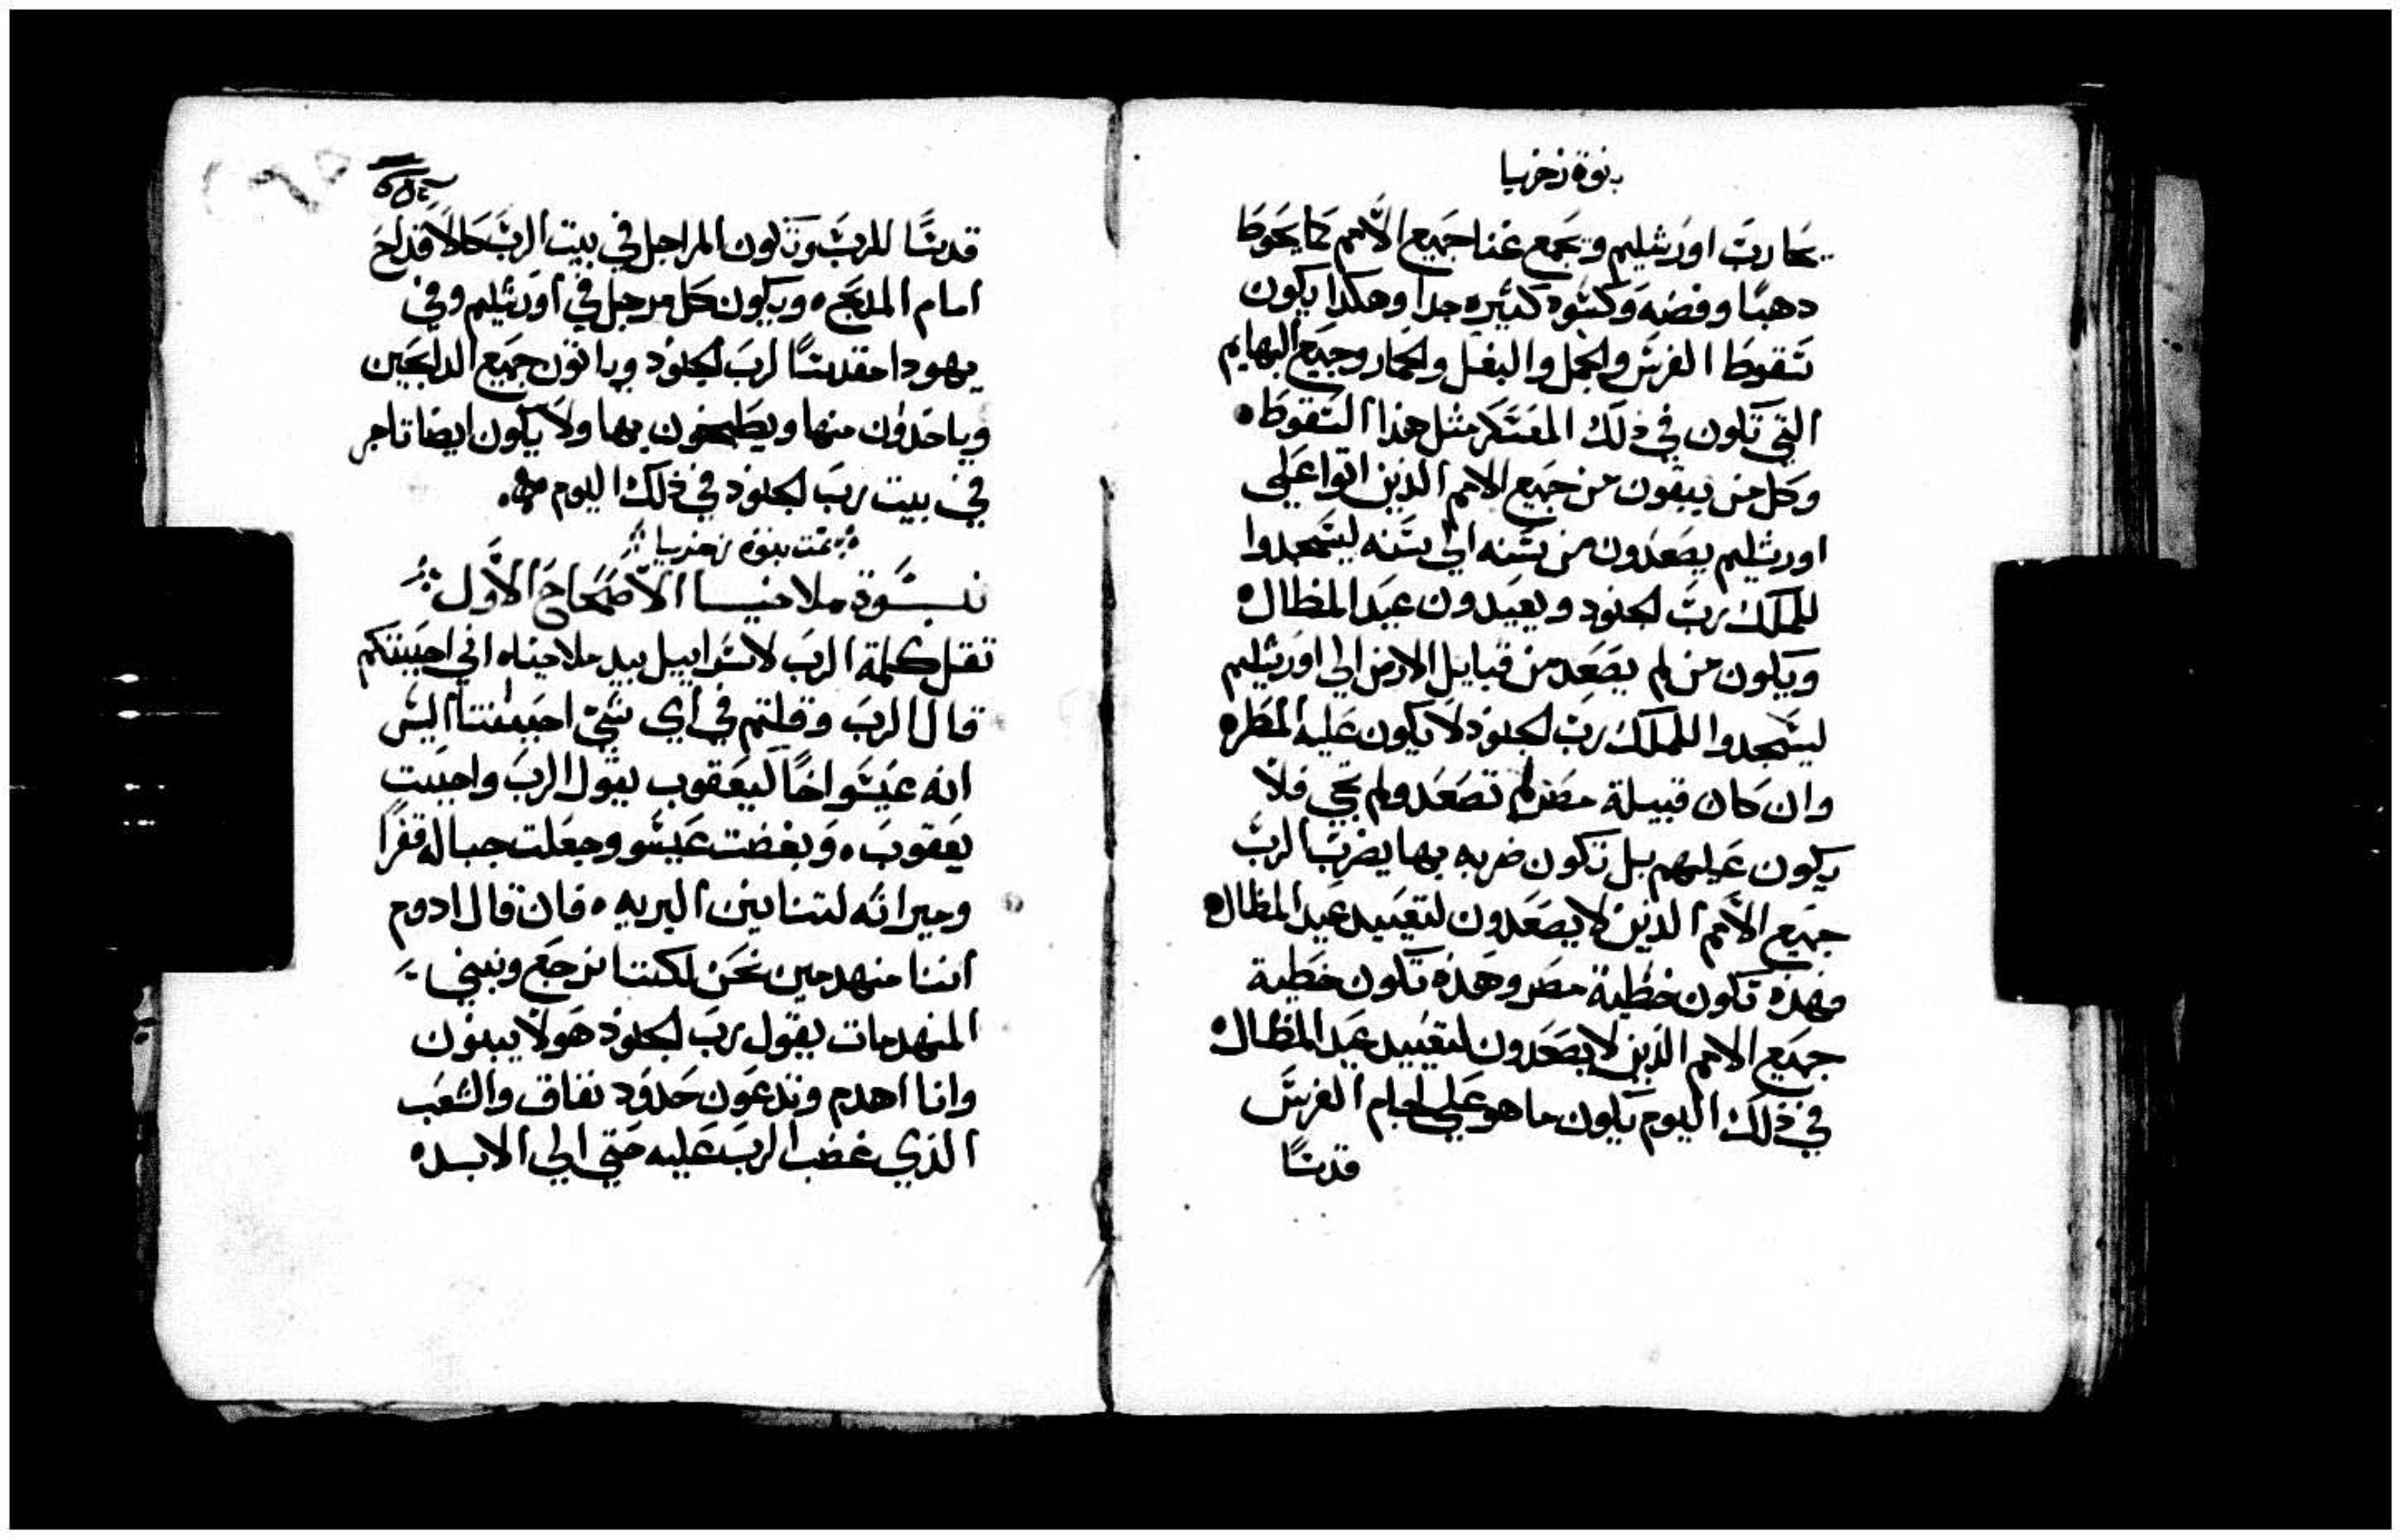 نبوة زخريا
يحارب اورشليم وتجمع غنا جميع الأمم كما يحوط
دهبًا وفضه وكسوه كتيره جدا وهكدا يكون
سقوط الفرس والجمل والبغل والحمار وجميع البهايم
التي تكون في ذلك المعسكر مثل هذا السقوط.
وكل من يبقون من جميع الامم الذين اتوا علي
اورشليم يصعدون من سنه الي سنه ليسجدوا
للملك رب الجنود ويعيدون عيد المظال ه
ويكون من لم يصعد من قبايل الارض الي اورشليم
ليسجدوا للملك رب الجنود لا يكون عليه المطر ه
وان كان قبيلة مصر لم تصعد ولم تجي فلا
يكون عليهم بل تكون ضربه بها يضرب الرب
جميع الأمم الذين لا يصعدون لتعييد عيد المظال ه
فهذه تكون خطية مصر وهذه تكون خطية
جميع الامم الذين لا يصعدون لتعييد عيد المظال ه
في ذلك اليوم يكون ما هو علي لجام الفرس
قدسًا
قدسًا للرب وتكون المراجل في بيت الرب كالاقداح
امام المدبح ه ويكون كل مرجل في اورشليم وفي
يهودا مقدسًا لرب الجنود وياتون جميع الدابحين
وياخدون منها ويطبخون بها ولا يكون ايضا تاجر
في بيت رب الجنود في ذلك اليوم
تمت نبوة زخريا
نبوة ملاخيا الاصحاح الأول
تقل كلمة الرب لاسراييل بيد ملاخيا ه اني احببتكم
قال الرب وقلتم في اي شي احببتنا اليس
انه عيسو اخًا ليعقوب يقول الرب واحببت
يعقوب ه وبغضت عيسو وجعلت جباله قفرًا
وميراثه لتنانين البريه ه فان قال ادوم
اننا منهدمين نحن لكننا نرجع ونبني
المنهدمات يقول رب الجنود هولا يبنون
وانا اهدم وتدعون حدود نفاق والشعب
الذي غضب الرب عليه حتي الي الابد ه